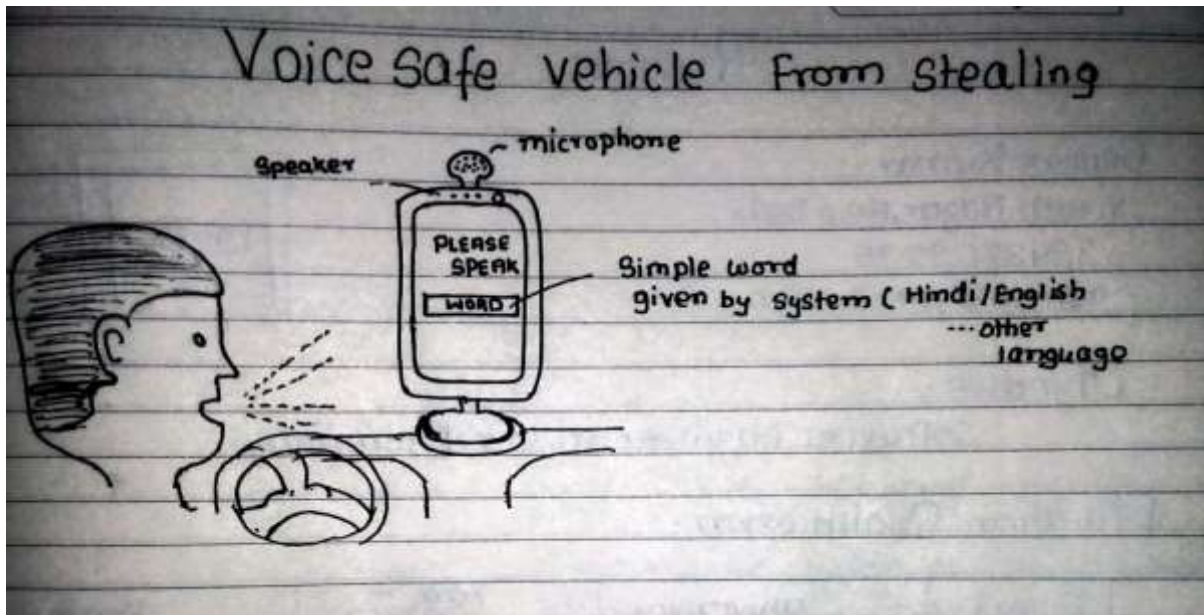 Voice safe vehicle From stealing
microphone
Speaker
PLEASE
SPEAK
WORD
Simple word
given by system ( Hindi/English
...other
language